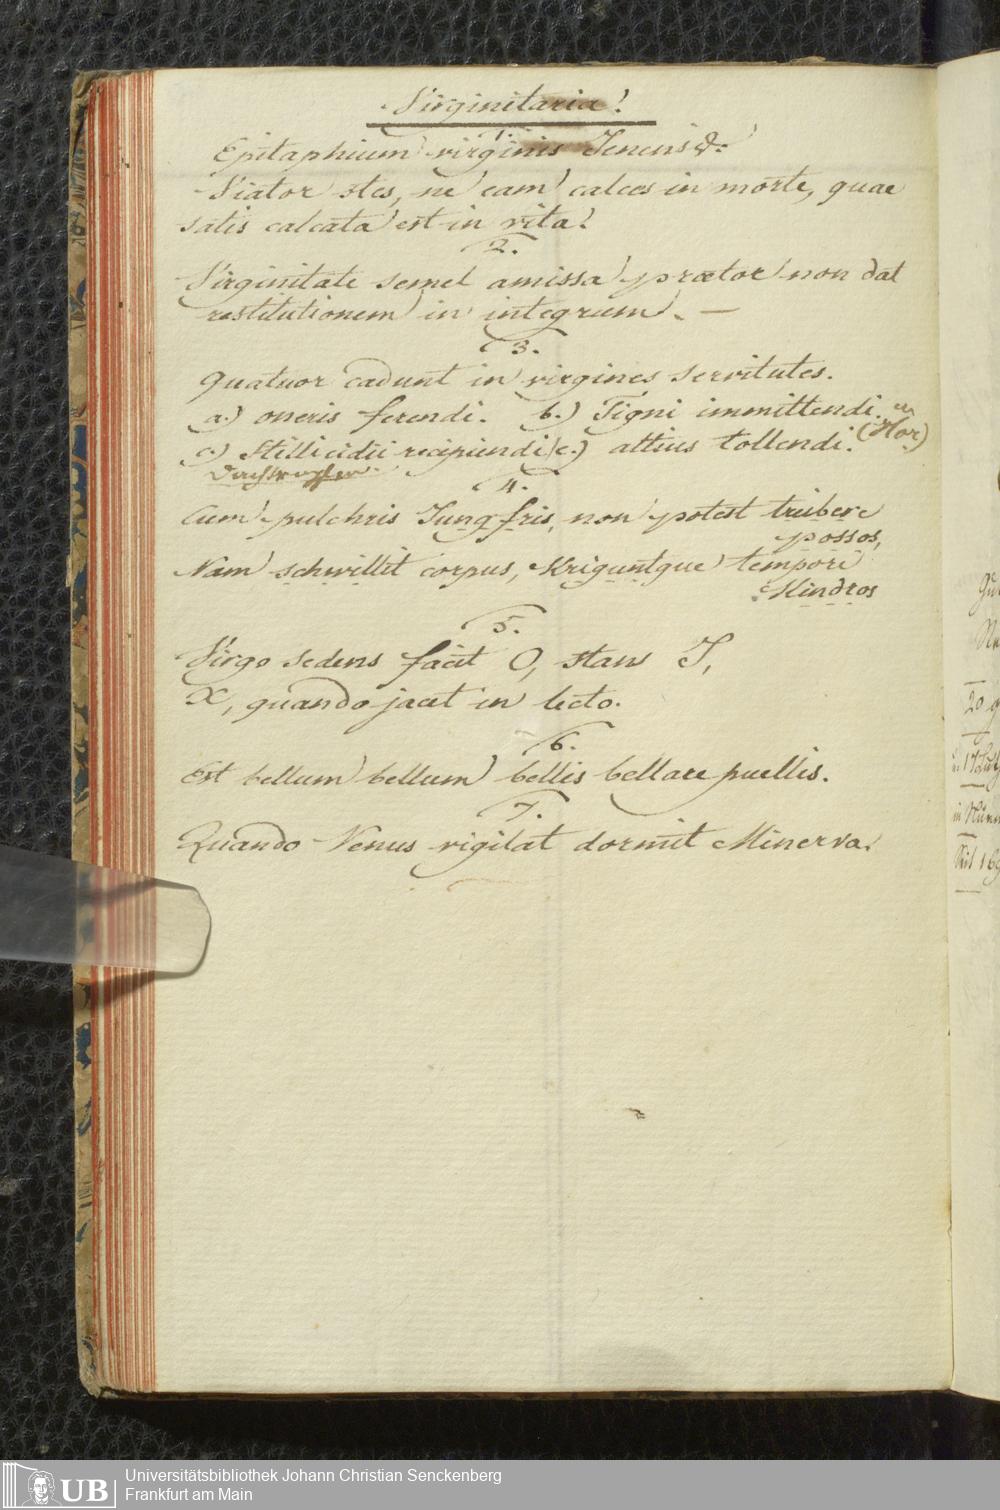 Virginitaria!
1.
Epitaphium virginis Jenensis.
Viator stes, ne eam calces in morte, quae
satis calcata est in vita!
2.
Virginitate semel amissa praetor non dat
restitutionem in integrum. —
3.
Quatuor cadunt in virgines servitutes.
a.) oneris ferendi. b.) Tigni immittendi.
c.) Stillicidii recipiundi c.) altius tollendi. (Hor)
Dachtropfen
4.
Cum pulchris Jungfris, non potest trüberc
possos,
Nam schwillit corpus, Kriguntque tempori
Kindros
5.
Virgo sedens facit O, stans I,
X, quando jacet in lecto.
6.
Est bellum bellum bellis bellare puellis.
7.
Quando Venus vigilat dormit Minerva.
20
in
UB
Universitätsbibliothek Johann Christian Senckenberg
Frankfurt am Main